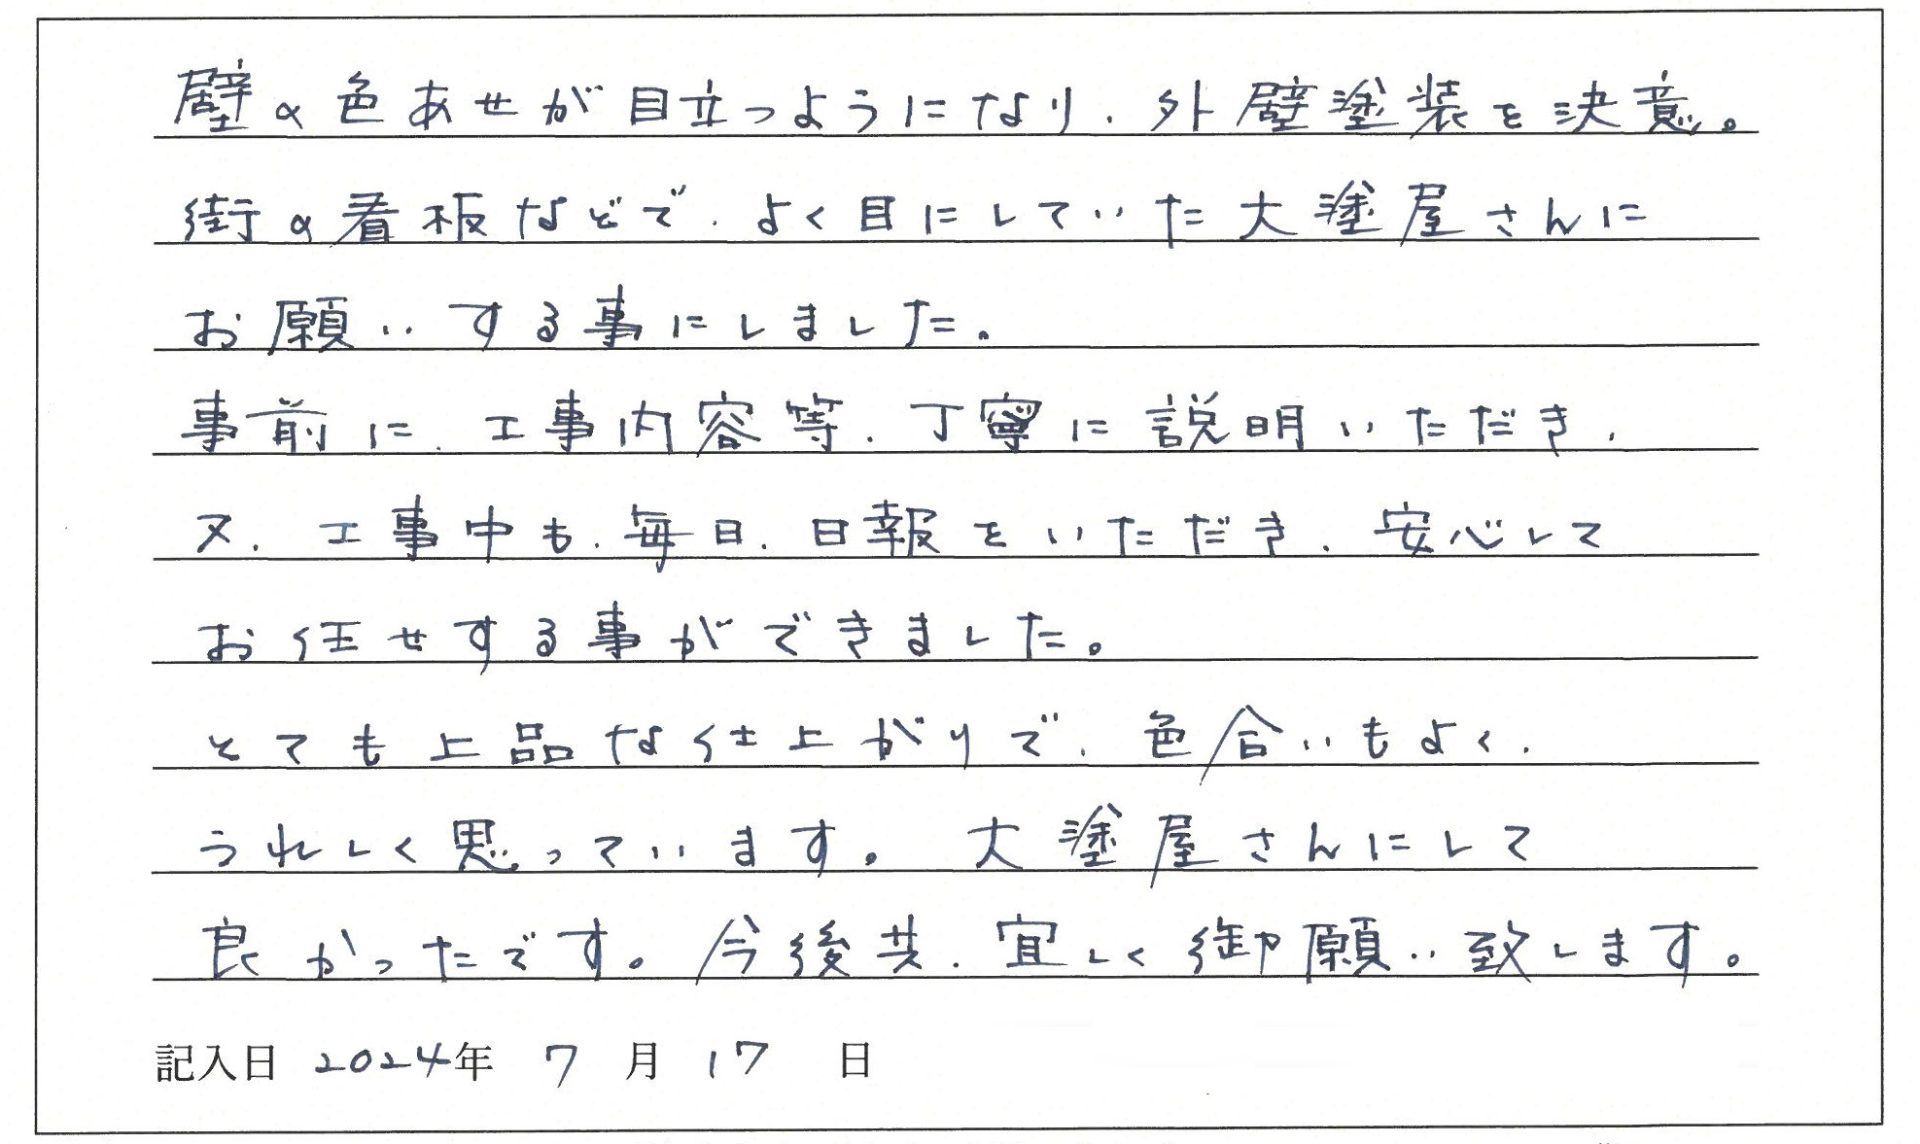 壁の色あせが目立つようになり、外壁塗装を決意。
街の看板などで、よく目にしていた大塗屋さんに
お願いする事にしました。
事前に、工事内容等、丁寧に説明いただき、
又、工事中も、毎日、日報をいただき、安心して
お任せする事ができました。
とても上品な仕上がりで、色合いもよく、
うれしく思っています。大塗屋さんにして
良かったです。今後共、宜しく御願い致します。
記入日 2024年 7 月 17 日